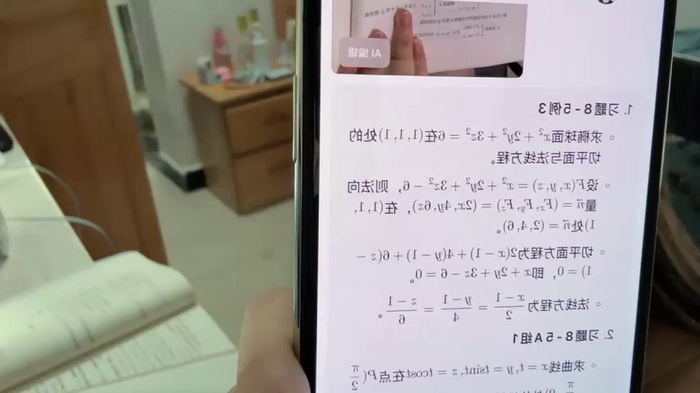 AI 编辑
1. 习题8-5例3
求椭球面x²+2y²+3z²=6在(1,1,1)处的
切平面与法线方程。
设F(x,y,z)=x²+2y²+3z²-6，则法向
量n⃗=(Fₓ,Fᵧ,F_z)=(2x,4y,6z)，在(1,1,
1)处n⃗=(2,4,6)。
切平面方程为2(x-1)+4(y-1)+6(z-
1)=0，即x+2y+3z-6=0。
法线方程为 (x-1)/2=(y-1)/4=(z-1)/6。
2. 习题8-5A组1
求曲线x=t,y=tsint,z=tcost在点P(π/2